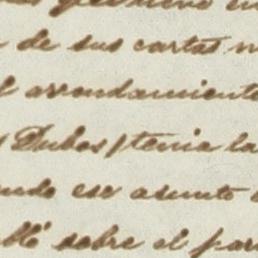 de sus cartas
arrendamiento
Dubos/tenia la
ese asunto
sobre el par